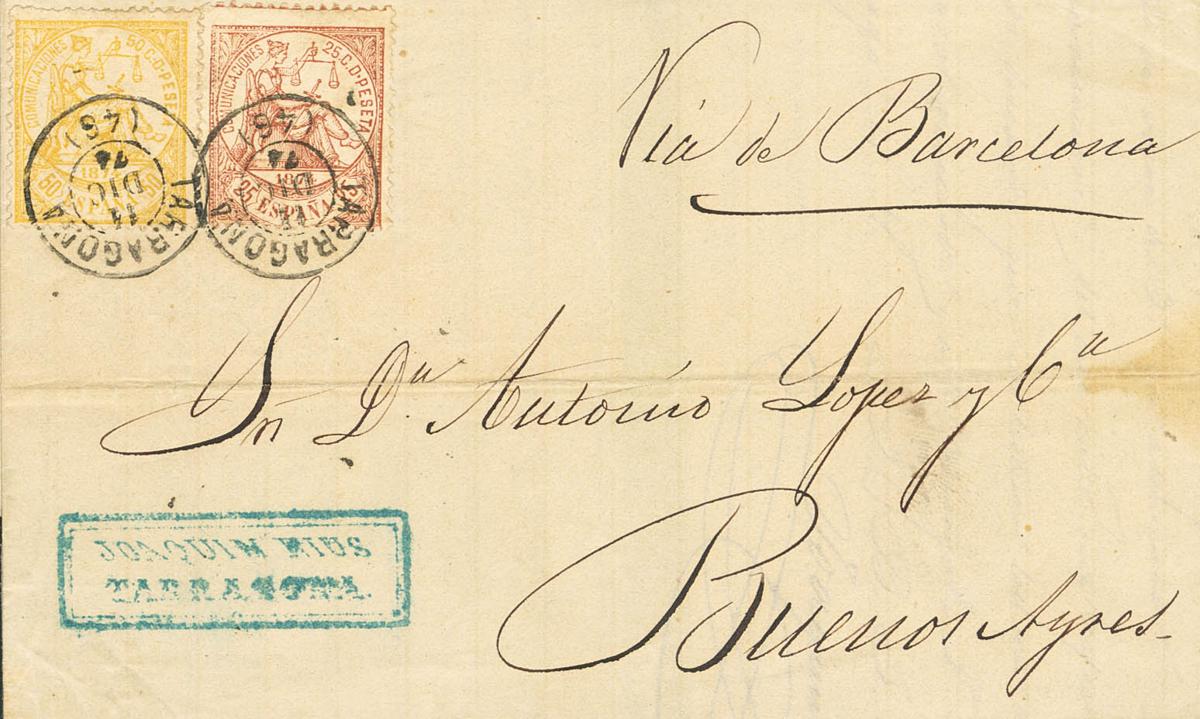 COMUNICACIONES 50 C. D. PESETA
50 ESPAÑA 50
COMUNICACIONES 25 C. D. PESETA
25 ESPAÑA 25
TARRAGONA
(48)
14
DIC
74
TARRAGONA
(48)
14
DIC
74
Via de Barcelona
Sn Dn Antonio Lopez y Ca
JOAQUIM MIUS
TARRAGONA.
Buenos Ayres-